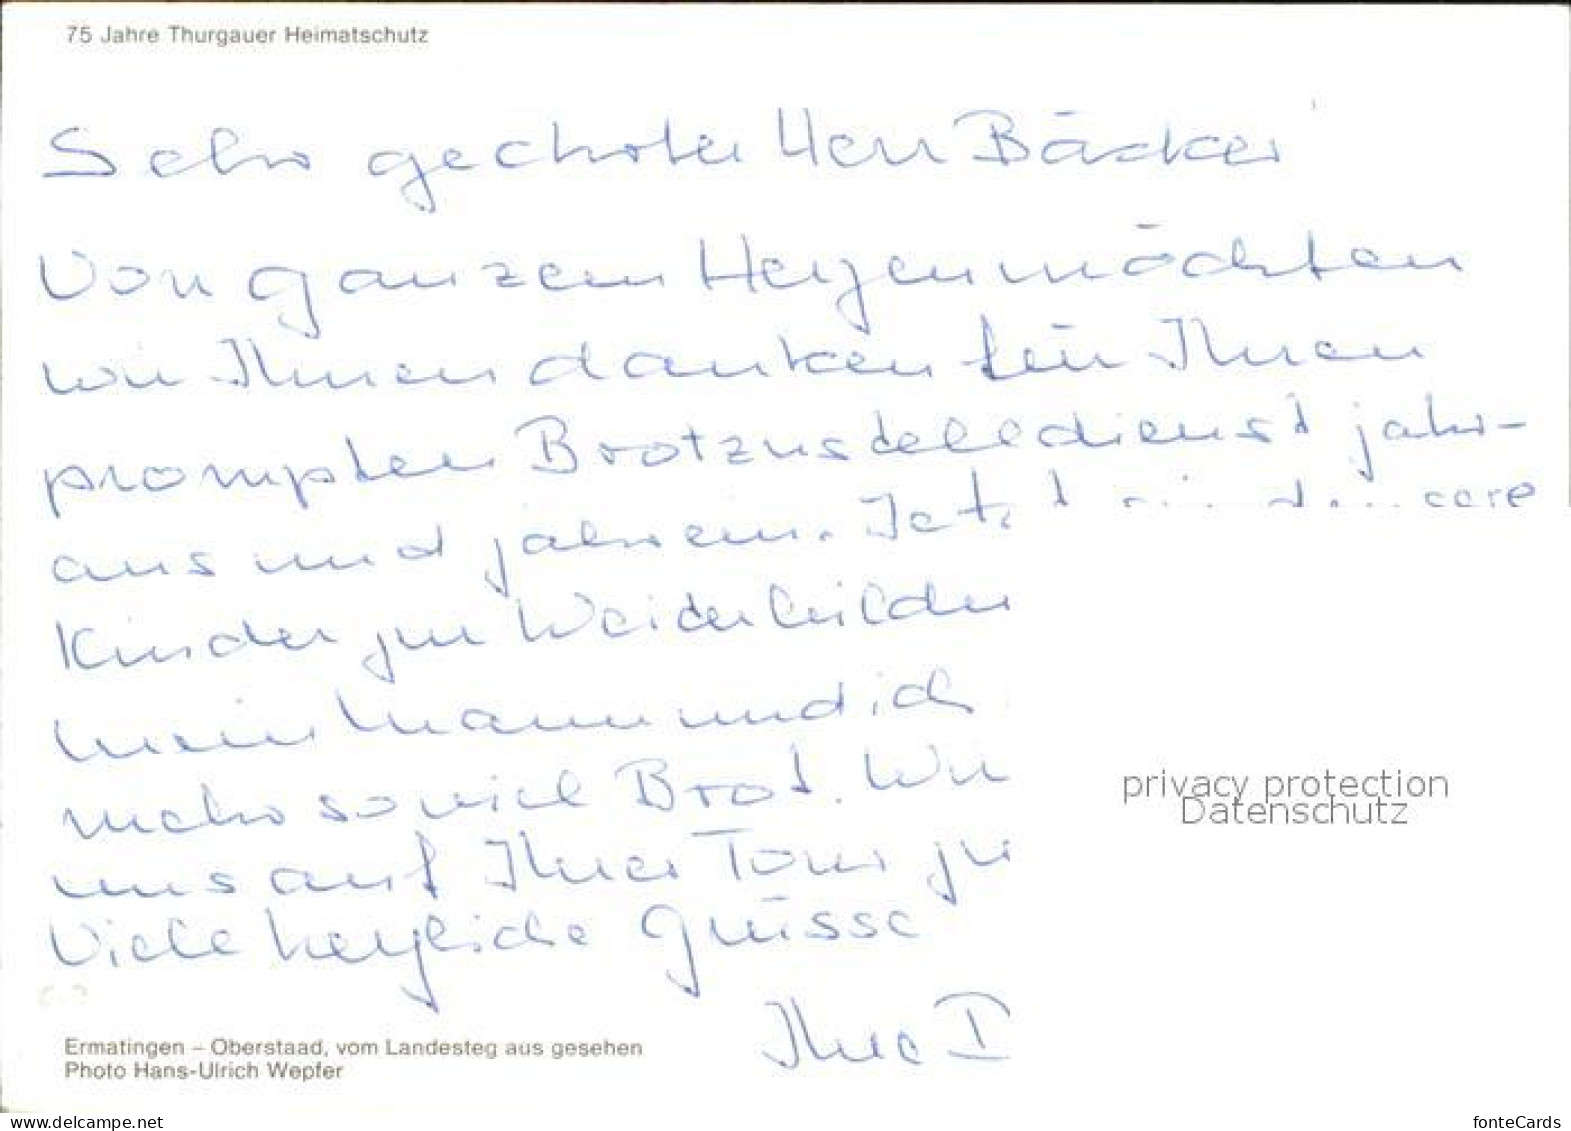 75 Jahre Thurgauer Heimatschutz
Sehr geehrter Herr Bäcker
Von ganzem Herzen möchten
wir Ihnen danken für Ihren
prompten Brotzustelldienst jahr-
aus und jahrein. Jetzt sind unsere
Kinder zur Weiterbildu
mein Mann und ich
mehr so viel Brot. Wir
uns auf Ihrer Tour zu
Viele herzliche Grüsse
Ihre
privacy protection
Datenschutz
Ermatingen – Oberstaad, vom Landesteg aus gesehen
Photo Hans-Ulrich Wepfer
www.delcampe.net
fonteCards